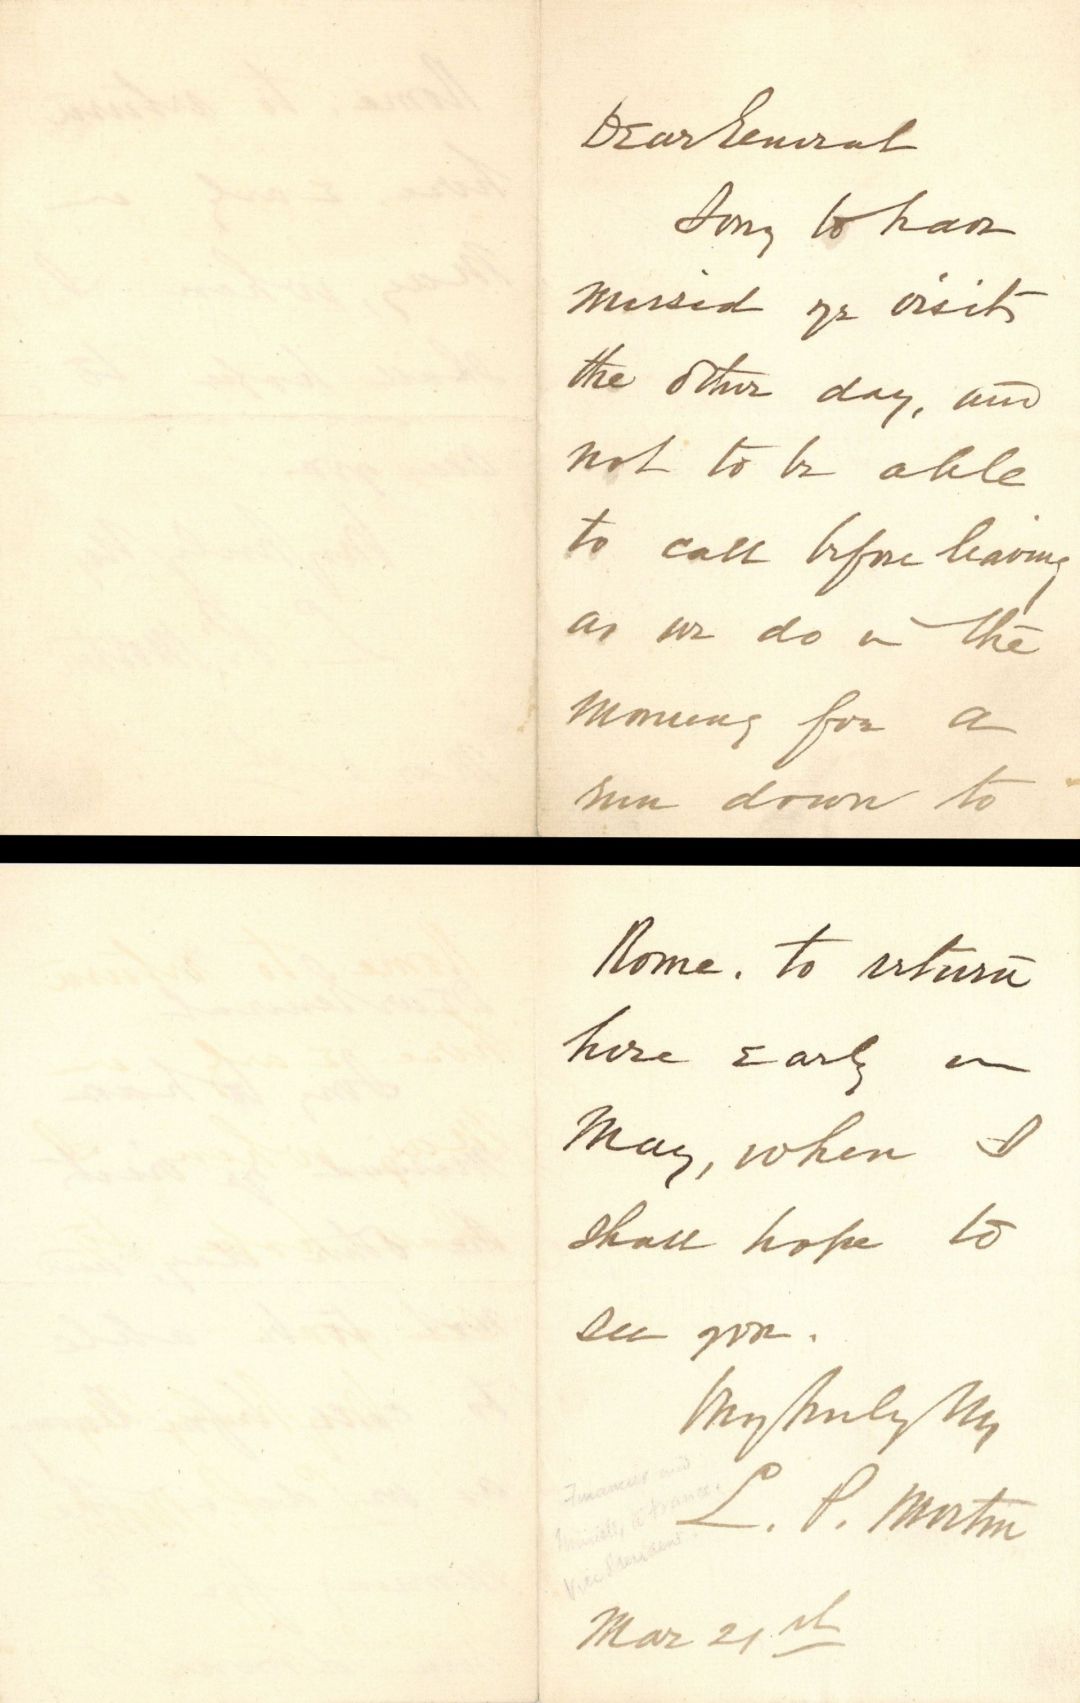 Dear General
Sorry to have
missed yr visit
the other day, and
not to be able
to call before leaving
as we do in the
morning for a
run down to
Rome. to return
here Early in
May, when I
shall hope to
see you.
Very truly Yrs
L. P. Morton
Financier and
Minister to France,
Vice President
Mar 21st